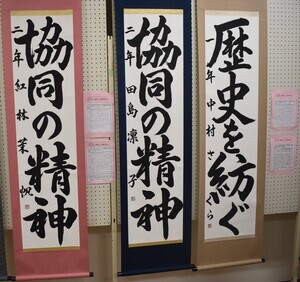 歴史を紡ぐ
一年 中村さくら
協同の精神
二年 田島凛子
協同の精神
二年 紅林茉帆